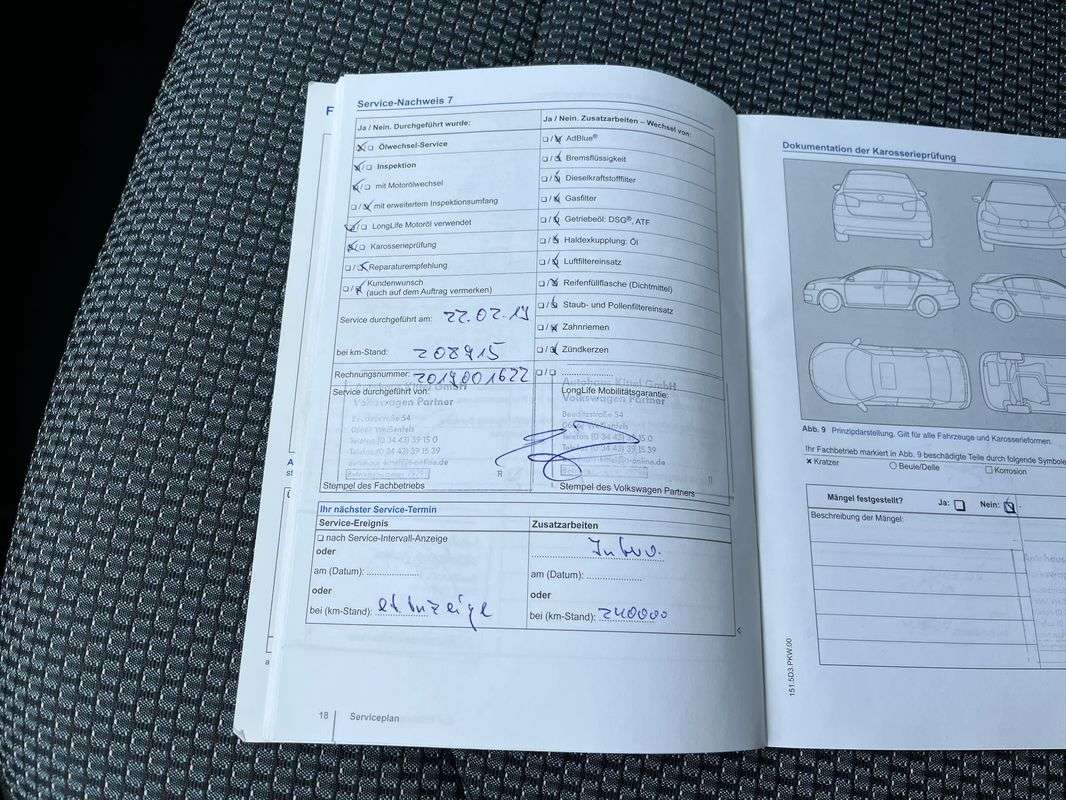 Service-Nachweis 7
Ja / Nein. Durchgeführt wurde:
Ölwechsel-Service
Inspektion
mit Motorölwechsel
mit erweitertem Inspektionsumfang
LongLife Motoröl verwendet
Karosserieprüfung
Reparaturempfehlung
Kundenwunsch
(auch auf dem Auftrag vermerken)
Service durchgeführt am: 22.02.19
bei km-Stand: 208915
Rechnungsnummer: 2019001622
Service durchgeführt von:
GmbH
Volkswagen Partner
Beuditzstraße 54
06667 Weißenfels
Telefon (0 34 43) 39 15 0
Telefax (0 34 43) 39 15 39
Stempel des Fachbetriebs
Ja / Nein. Zusatzarbeiten – Wechsel von:
AdBlue®
Bremsflüssigkeit
Dieselkraftstofffilter
Gasfilter
Getriebeöl: DSG®, ATF
Haldexkupplung: Öl
Luftfiltereinsatz
Reifenfüllflasche (Dichtmittel)
Staub- und Pollenfiltereinsatz
Zahnriemen
Zündkerzen
Autohaus Kittel GmbH
LongLife Mobilitätsgarantie:
Volkswagen Partner
Beuditzstraße 54
06667 Weißenfels
Telefon (0 34 43) 39 15 0
39 15 39
Stempel des Volkswagen Partners
Ihr nächster Service-Termin
Service-Ereignis
nach Service-Intervall-Anzeige
oder
am (Datum):
oder
bei (km-Stand): lt Anzeige
Zusatzarbeiten
am (Datum):
oder
bei (km-Stand): 240000
18 Serviceplan
Dokumentation der Karosserieprüfung
Abb. 9 Prinzipdarstellung. Gilt für alle Fahrzeuge und Karosserieformen.
Ihr Fachbetrieb markiert in Abb. 9 beschädigte Teile durch folgende Symbole
× Kratzer
Beule/Delle
Korrosion
Mängel festgestellt? Ja: Nein:
Beschreibung der Mängel:
151.5D3.PKW.00